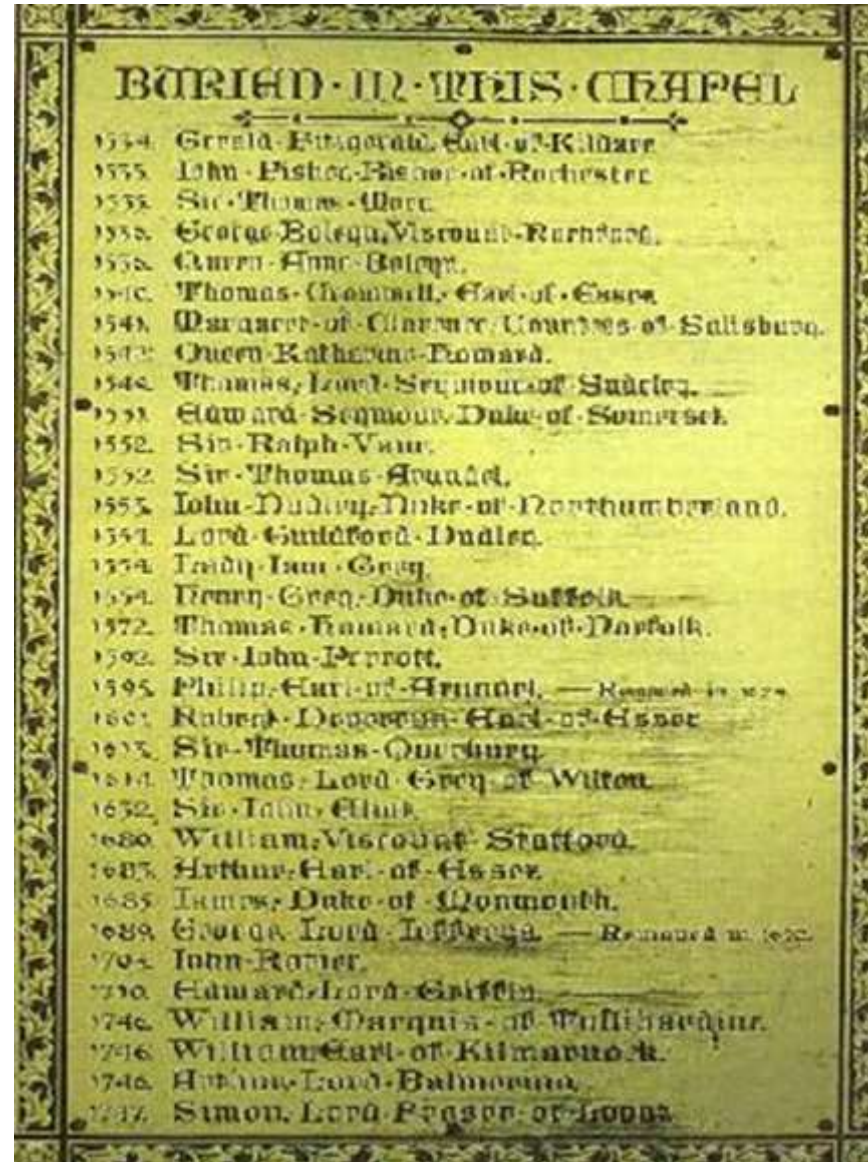 BURIED·IN·THIS·CHAPEL
1534. Gerald·Fitzgerald, Earl·of·Kildare
1535. John·Fisher, Bishop·of·Rochester
1535. Sir·Thomas·More.
1536. George·Boleyn, Viscount·Rochford.
1536. Queen·Anne·Boleyn.
1540. Thomas·Cromwell, Earl·of·Essex
1541. Margaret·of·Clarence, Countess·of·Salisbury.
1542. Queen·Katharine·Howard.
1549. Thomas, Lord·Seymour·of·Sudeley.
Edward·Seymour, Duke·of·Somerset.
1552. Sir·Ralph·Vane.
1552. Sir·Thomas·Arundel.
1553. John·Dudley, Duke·of·Northumberland.
1554. Lord·Guildford·Dudley.
1554. Lady·Jane·Grey.
1554. Henry·Grey, Duke·of·Suffolk.
1572. Thomas·Howard, Duke·of·Norfolk.
1592. Sir·John·Perrott.
1595. Philip, Earl·of·Arundel. — Removed in 1624.
1601. Robert·Devereux·Earl·of·Essex
1613. Sir·Thomas·Overbury
1614. Thomas, Lord·Grey·of·Wilton.
1632. Sir·John·Eliot.
1680. William, Viscount·Stafford.
1683. Arthur, Earl·of·Essex.
1685. James, Duke·of·Monmouth.
1689. George, Lord·Jeffreys. — Removed in
John·Rotier.
1710. Edward, Lord·Griffin.
1746. William, Marquis·of·Tullibardine.
1746. William, Earl·of·Kilmarnock.
1746. Arthur, Lord·Balmerino.
1747. Simon, Lord·Fraser·of·Lovat